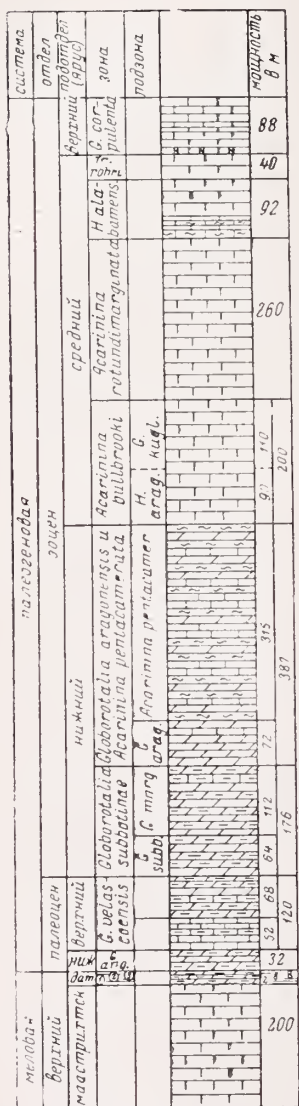 система
отдел
подотдел (ярус)
зона
подзона
мощность в м
палеогеновая
эоцен
Верхний
G. cor-
pulenta
88
Tr.
rohri
40
средний
H. ala-
bamens.
92
Acarinina
rotundimarginata
260
Acarinina
bullbrooki
G.
kugl.
110
H.
arag.
90
200
нижний
Globorotalia aragonensis и
Acarinina pentacamerata
Acarinina pentacamer
315
G.
arag.
72
387
Globorotalia
subbotinae
G. marg.
112
G.
subb.
64
176
палеоцен
верхний
G. velas-
coensis
68
52
120
ниж
G.
ang.
32
дат
меловая
верхний
маастрихтск
200